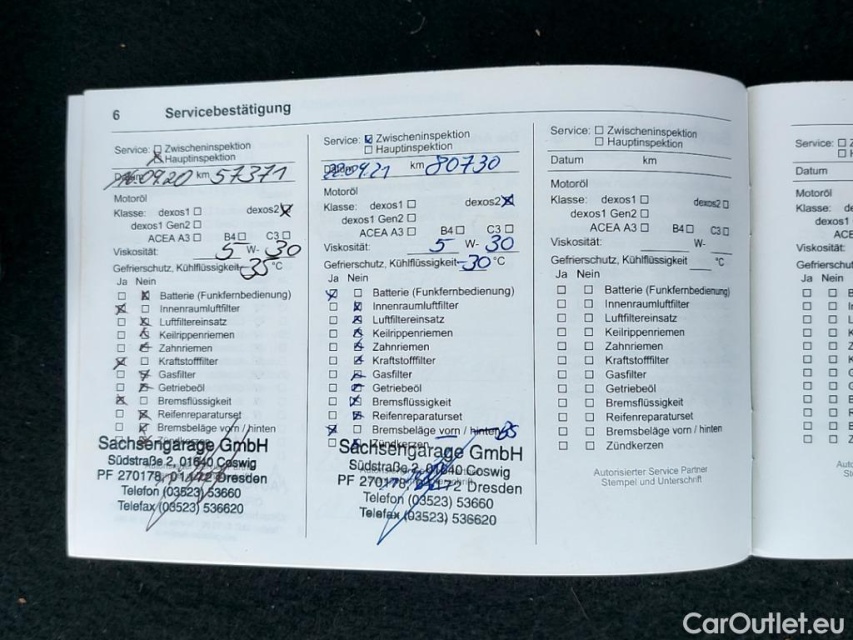 6 Servicebestätigung
Service: Zwischeninspektion
Hauptinspektion
Datum 16.09.20 km 57371
Motoröl
Klasse: dexos1 dexos2
dexos1 Gen2
ACEA A3 B4 C3
Viskosität: 5 W- 30
Gefrierschutz, Kühlflüssigkeit -35 °C
Ja Nein
Batterie (Funkfernbedienung)
Innenraumluftfilter
Luftfiltereinsatz
Keilrippenriemen
Zahnriemen
Kraftstofffilter
Gasfilter
Getriebeöl
Bremsflüssigkeit
Reifenreparaturset
Bremsbeläge vorn / hinten
Zündkerzen
Sachsengarage GmbH
Südstraße 2, 01640 Coswig
PF 270178, 01172 Dresden
Telefon (03523) 53660
Telefax (03523) 536620
Service: Zwischeninspektion
Hauptinspektion
Datum 22.09.21 km 80730
Motoröl
Klasse: dexos1 dexos2
dexos1 Gen2
ACEA A3 B4 C3
Viskosität: 5 W- 30
Gefrierschutz, Kühlflüssigkeit -30 °C
Ja Nein
Batterie (Funkfernbedienung)
Innenraumluftfilter
Luftfiltereinsatz
Keilrippenriemen
Zahnriemen
Kraftstofffilter
Gasfilter
Getriebeöl
Bremsflüssigkeit
Reifenreparaturset
Bremsbeläge vorn / hinten
Zündkerzen
Sachsengarage GmbH
Südstraße 2, 01640 Coswig
PF 270178, 01172 Dresden
Telefon (03523) 53660
Telefax (03523) 536620
Service: Zwischeninspektion
Hauptinspektion
Datum km
Motoröl
Klasse: dexos1 dexos2
dexos1 Gen2
ACEA A3 B4 C3
Viskosität: W-
Gefrierschutz, Kühlflüssigkeit °C
Ja Nein
Batterie (Funkfernbedienung)
Innenraumluftfilter
Luftfiltereinsatz
Keilrippenriemen
Zahnriemen
Kraftstofffilter
Gasfilter
Getriebeöl
Bremsflüssigkeit
Reifenreparaturset
Bremsbeläge vorn / hinten
Zündkerzen
Autorisierter Service Partner
Stempel und Unterschrift
Service:
Datum
Motoröl
Klasse:
dexos1
ACEA
Viskosität:
Gefrierschutz
Ja Nein
CarOutlet.eu